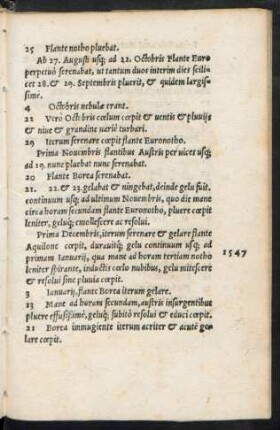 25 Flante notho pluebat.
Ab 27. Augusti usq; ad 22. Octobris Flante Euro
perpetuò serenabat, ut tantum duos interim dies scili
cet 28. & 29. Septembris pluerit, & quidem largiſ-
ſime.
4 Octobris nebulæ erant.
22 Verò Octobris cœlum cœpit & uentis & pluuijs
& niue & grandine uerti turbari.
29 Iterum serenare cœpit flante Euronotho.
Prima Nouembris flantibus Austris per uices usq;
ad 19. nunc pluebat nunc serenabat.
20 Flante Borea serenabat.
21. 22. & 23. gelabat & ningebat, deinde gelu fuit,
continuum usq; ad ultimum Nouembris, quo die mane
circa horam secundam flante Euronotho, pluere cœpit
leniter, geluq; emollescere ac resolui.
Prima Decembris, iterum serenare & gelare flante
Aquilone cœpit, durauitq; gelu continuum usq; ad
primam Ianuarij, qua mane ad horam tertiam notho
leniter spirante, inductis cœlo nubibus, gelu mitescere
& resolui sine pluuia cœpit.
1547
3 Ianuarij, flante Borea iterum gelare.
13 Mane ad horam secundam, austris insurgentibus
pluere effusissimè, geluq; subitò resolui & educi cœpit.
21 Borea immugiente iterum acriter & acutè ge-
lare cœpit.